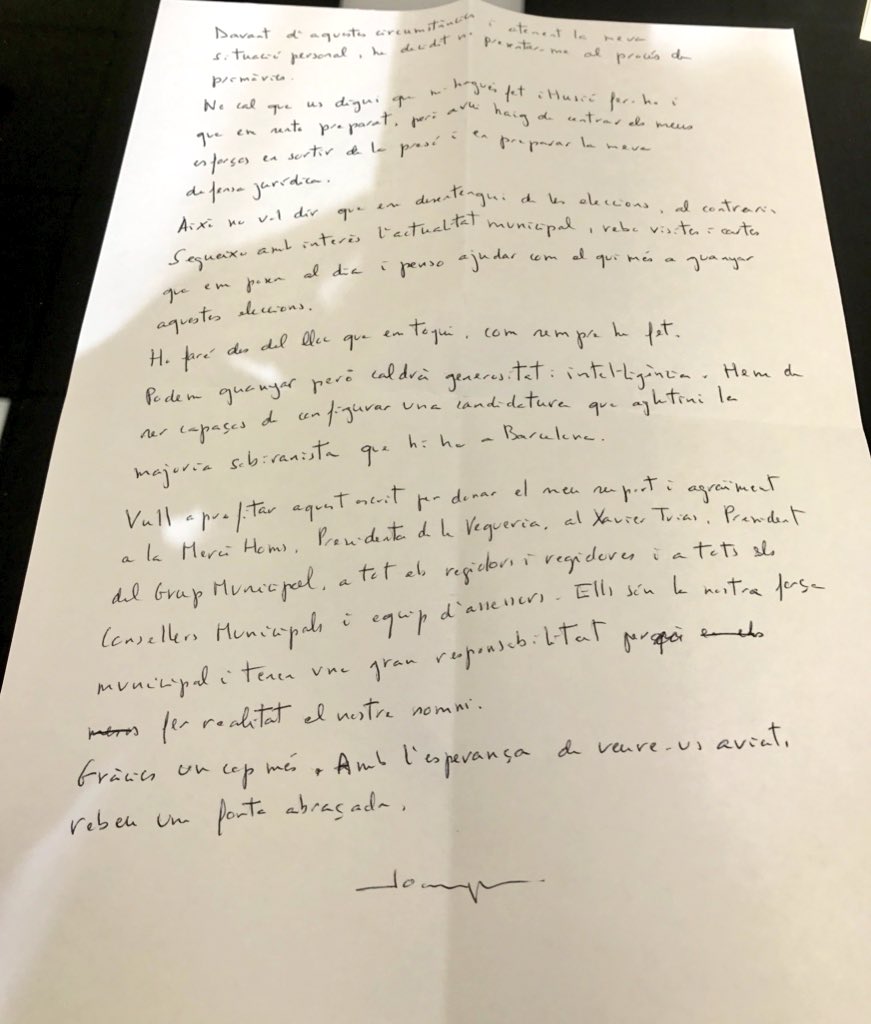 Davant d'aquestes circumstàncies i atenent la meva
situació personal, he decidit no presentar-me al procés de
primàries.
No cal que us digui que m'hagués fet il·lusió fer-ho i
que em sento preparat, però avui haig de centrar els meus
esforços en sortir de la presó i en preparar la meva
defensa jurídica.
Això no vol dir que em desentengui de les eleccions, al contrari.
Segueixo amb interès l'actualitat municipal, rebo visites i cartes
que em posen al dia i penso ajudar com el qui més a guanyar
aquestes eleccions.
Ho faré des del lloc que em toqui, com sempre he fet.
Podem guanyar però caldrà generositat i intel·ligència. Hem de
ser capaços de configurar una candidatura que aglutini la
majoria sobiranista que hi ha a Barcelona.
Vull aprofitar aquest escrit per donar el meu suport i agraïment
a la Mercè Homs, Presidenta de la Vegueria, al Xavier Trias, President
del Grup Municipal, a tot els regidors i regidores i a tots els
Consellers Municipals i equip d'assessors. Ells són la nostra força
municipal i tenen una gran responsabilitat
fer realitat el nostre somni.
Gràcies un cop més. Amb l'esperança de veure-us aviat,
rebeu una forta abraçada.